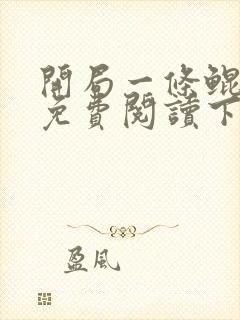 開局一條鯤
免費閱讀下
盈風